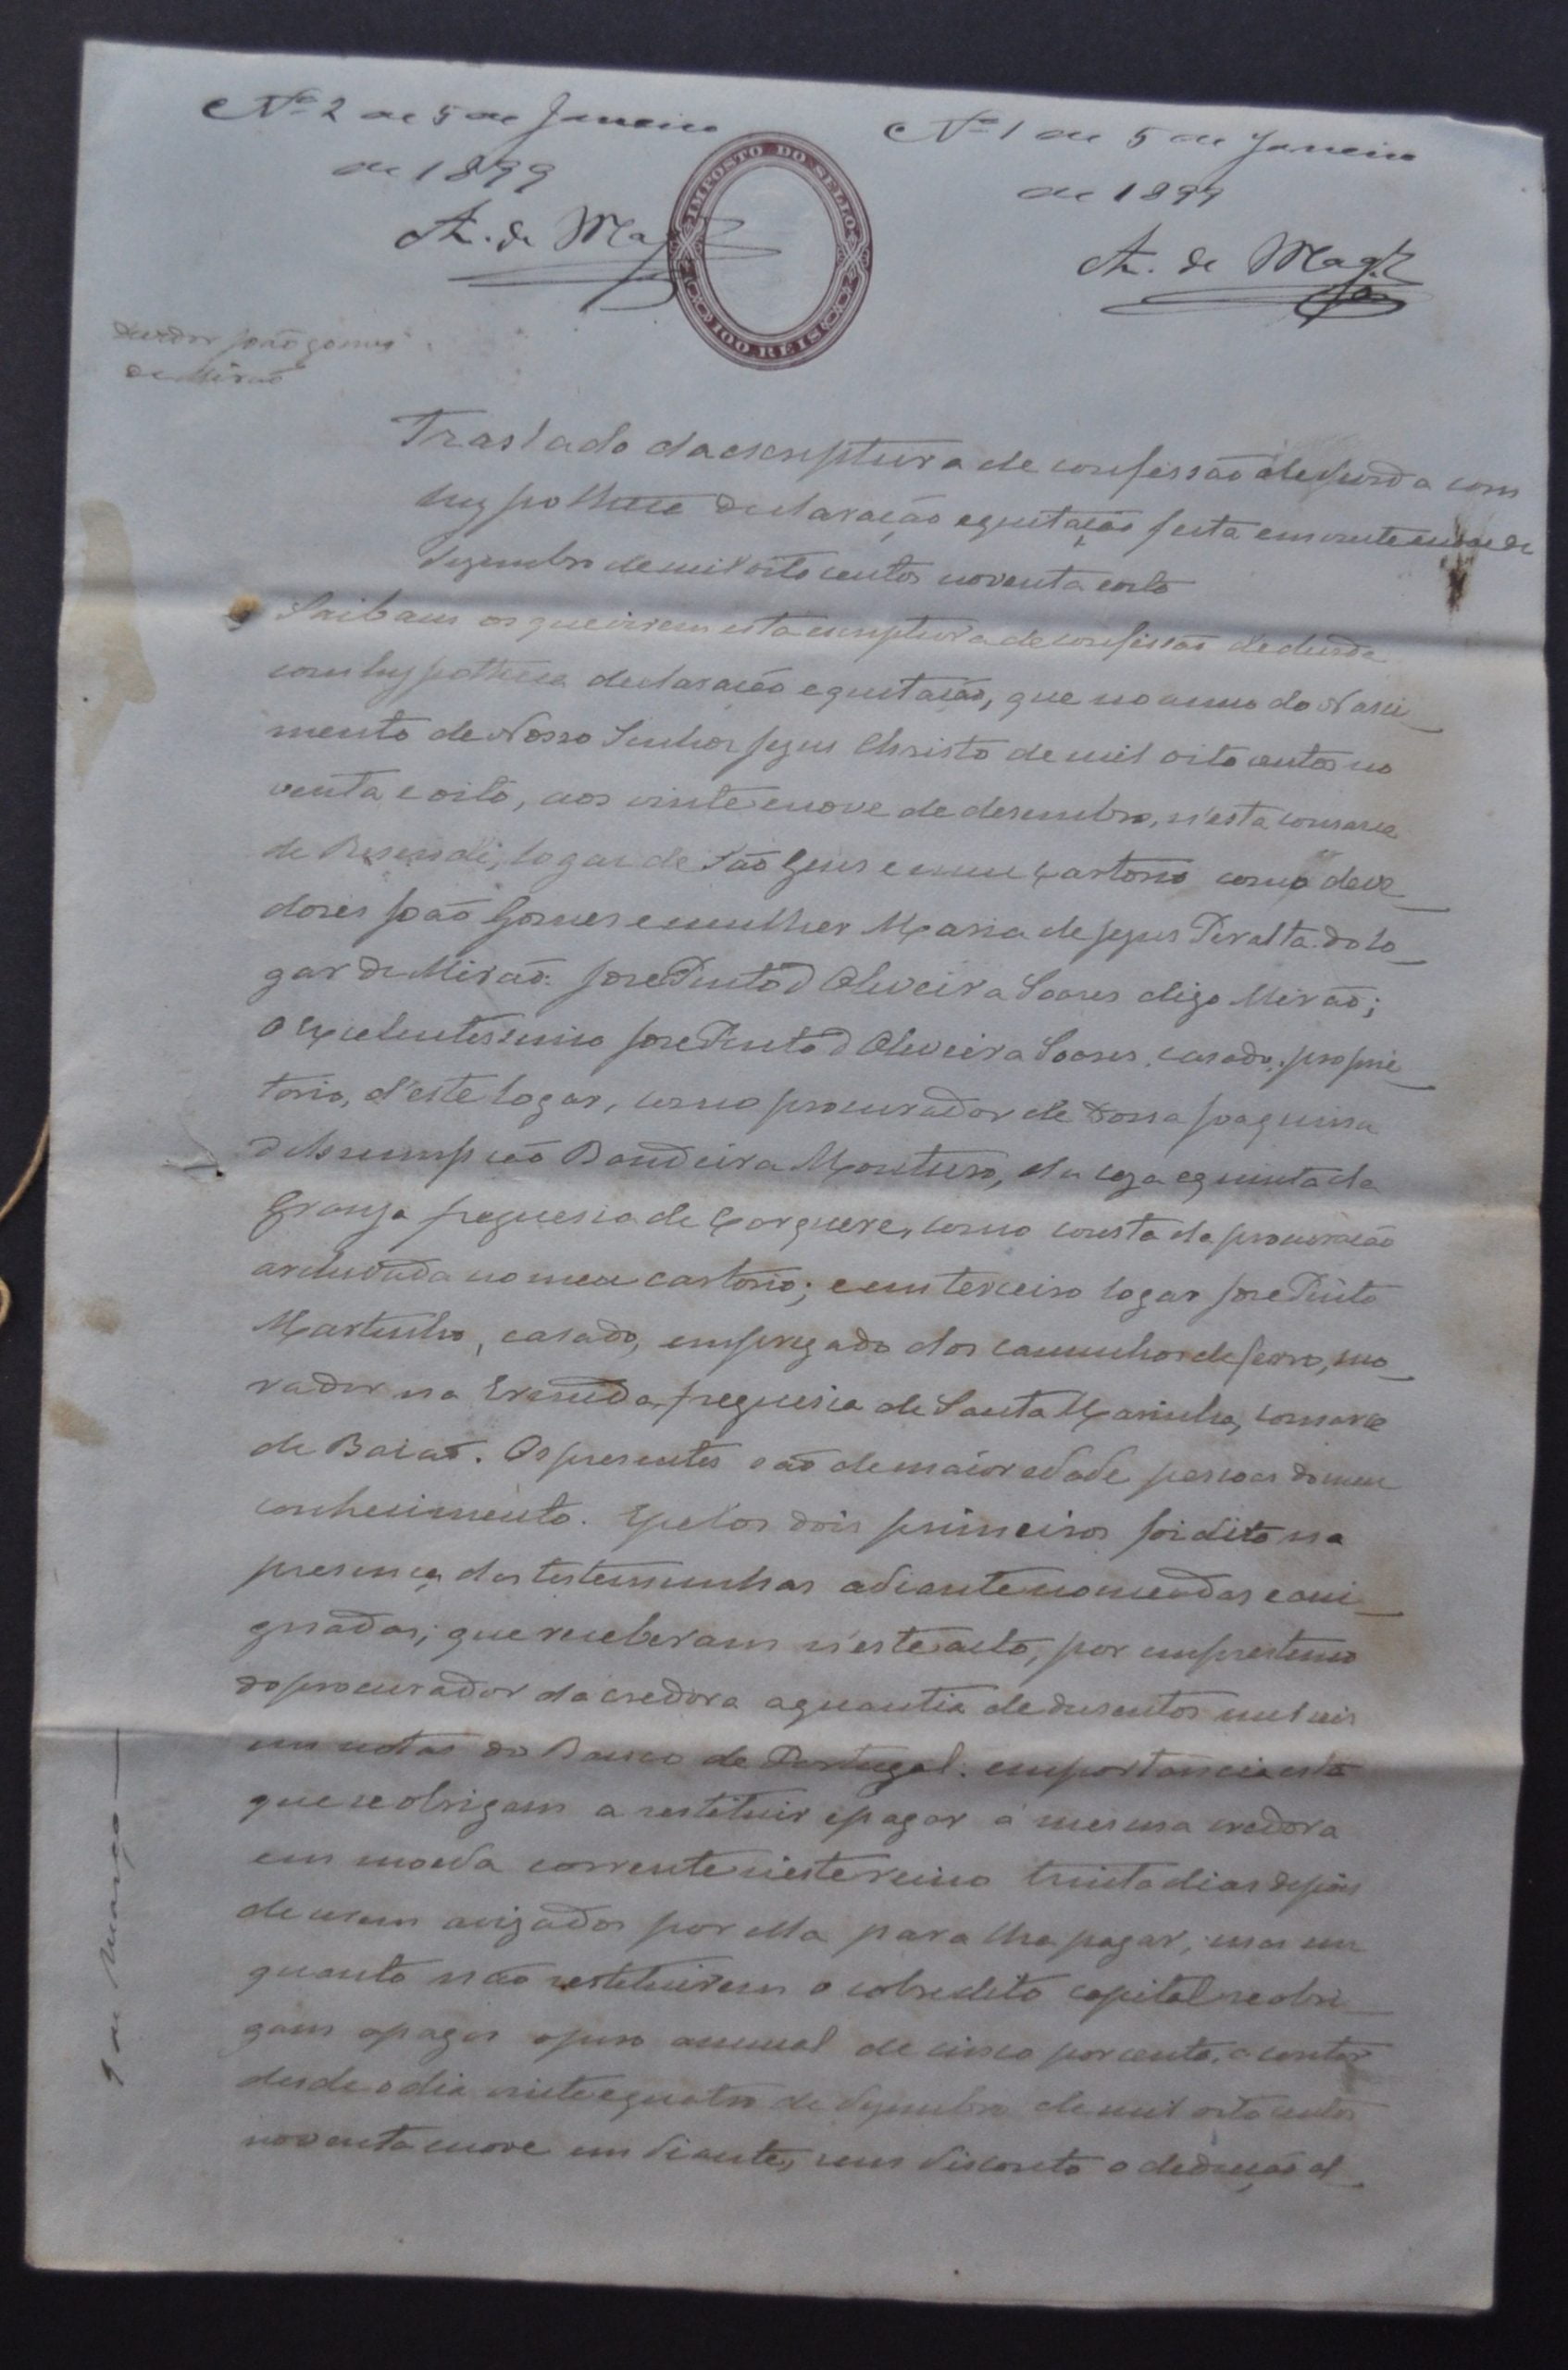 Nº 2 de 5 de Janeiro
de 1899
A. de Mag
Nº 1 de 5 de Janeiro
de 1899
A. de Magz
IMPOSTO DO SELLO
100 REIS
Devedor João Gomes
de Mirão
Traslado da escriptura de confissão de divida com
hypotheca declaração e quitação feita em vinte e nove de
Dezembro de mil oito centos noventa e oito
Saibam os que virem esta escriptura de confissão de divida
com hypotheca declaração e quitação, que no anno do Nasci
mento de Nosso Senhor Jezus Christo de mil oito centos no
venta e oito, aos vinte e nove de desembro, n'esta comarca
de Resende, logar de São Gens e meu cartorio como deve
dores João Gomes e mulher Maria de Jezus Peralta do lo
gar de Mirão: José Pinto d'Oliveira Soares digo Mirão;
O Excelentessimo José Pinto d'Oliveira Soares, casado, proprie
tario, d'este logar, como procurador de Dona Joaquina
d'Assumpção Bandeira Monteiro, da caza e quinta da
Granja freguesia de Carquere, como consta da procuração
archivada no meu cartorio; e em terceiro logar José Pinto
Martinho, casado, empregado dos caminhos de ferro, mo
rador na Ermida, freguesia de Santa Marinha, comarca
de Baião. Os presentes são de maior edade pessoas do meu
conhecimento. E pelos dois primeiros foi dito na
presença das testemunhas adiante nomeadas e assi
gnadas; que receberam n'este acto, por emprestimo
do procurador da credora a quantia de dusentos mil reis
em notas do Banco de Portugal: emportancia esta
que se obrigam a restituir e pagar á mesma credora
em moeda corrente n'este reino trinta dias depois
de serem avizados por ella para lha pagar, mas em
quanto não restituirem o sobredito capital se obri
gam a pagar o juro annual de cinco por cento, a contar
desde o dia vinte e quatro de Dezembro de mil oito centos
noventa e nove em diante, sem disconto o dedução al
9 de Março